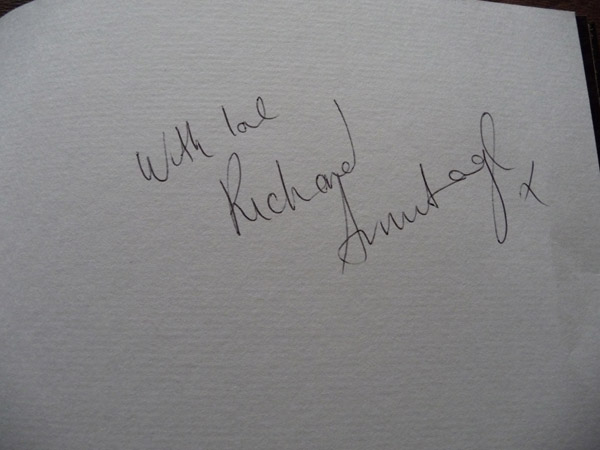 With love
Richard
Armitage x